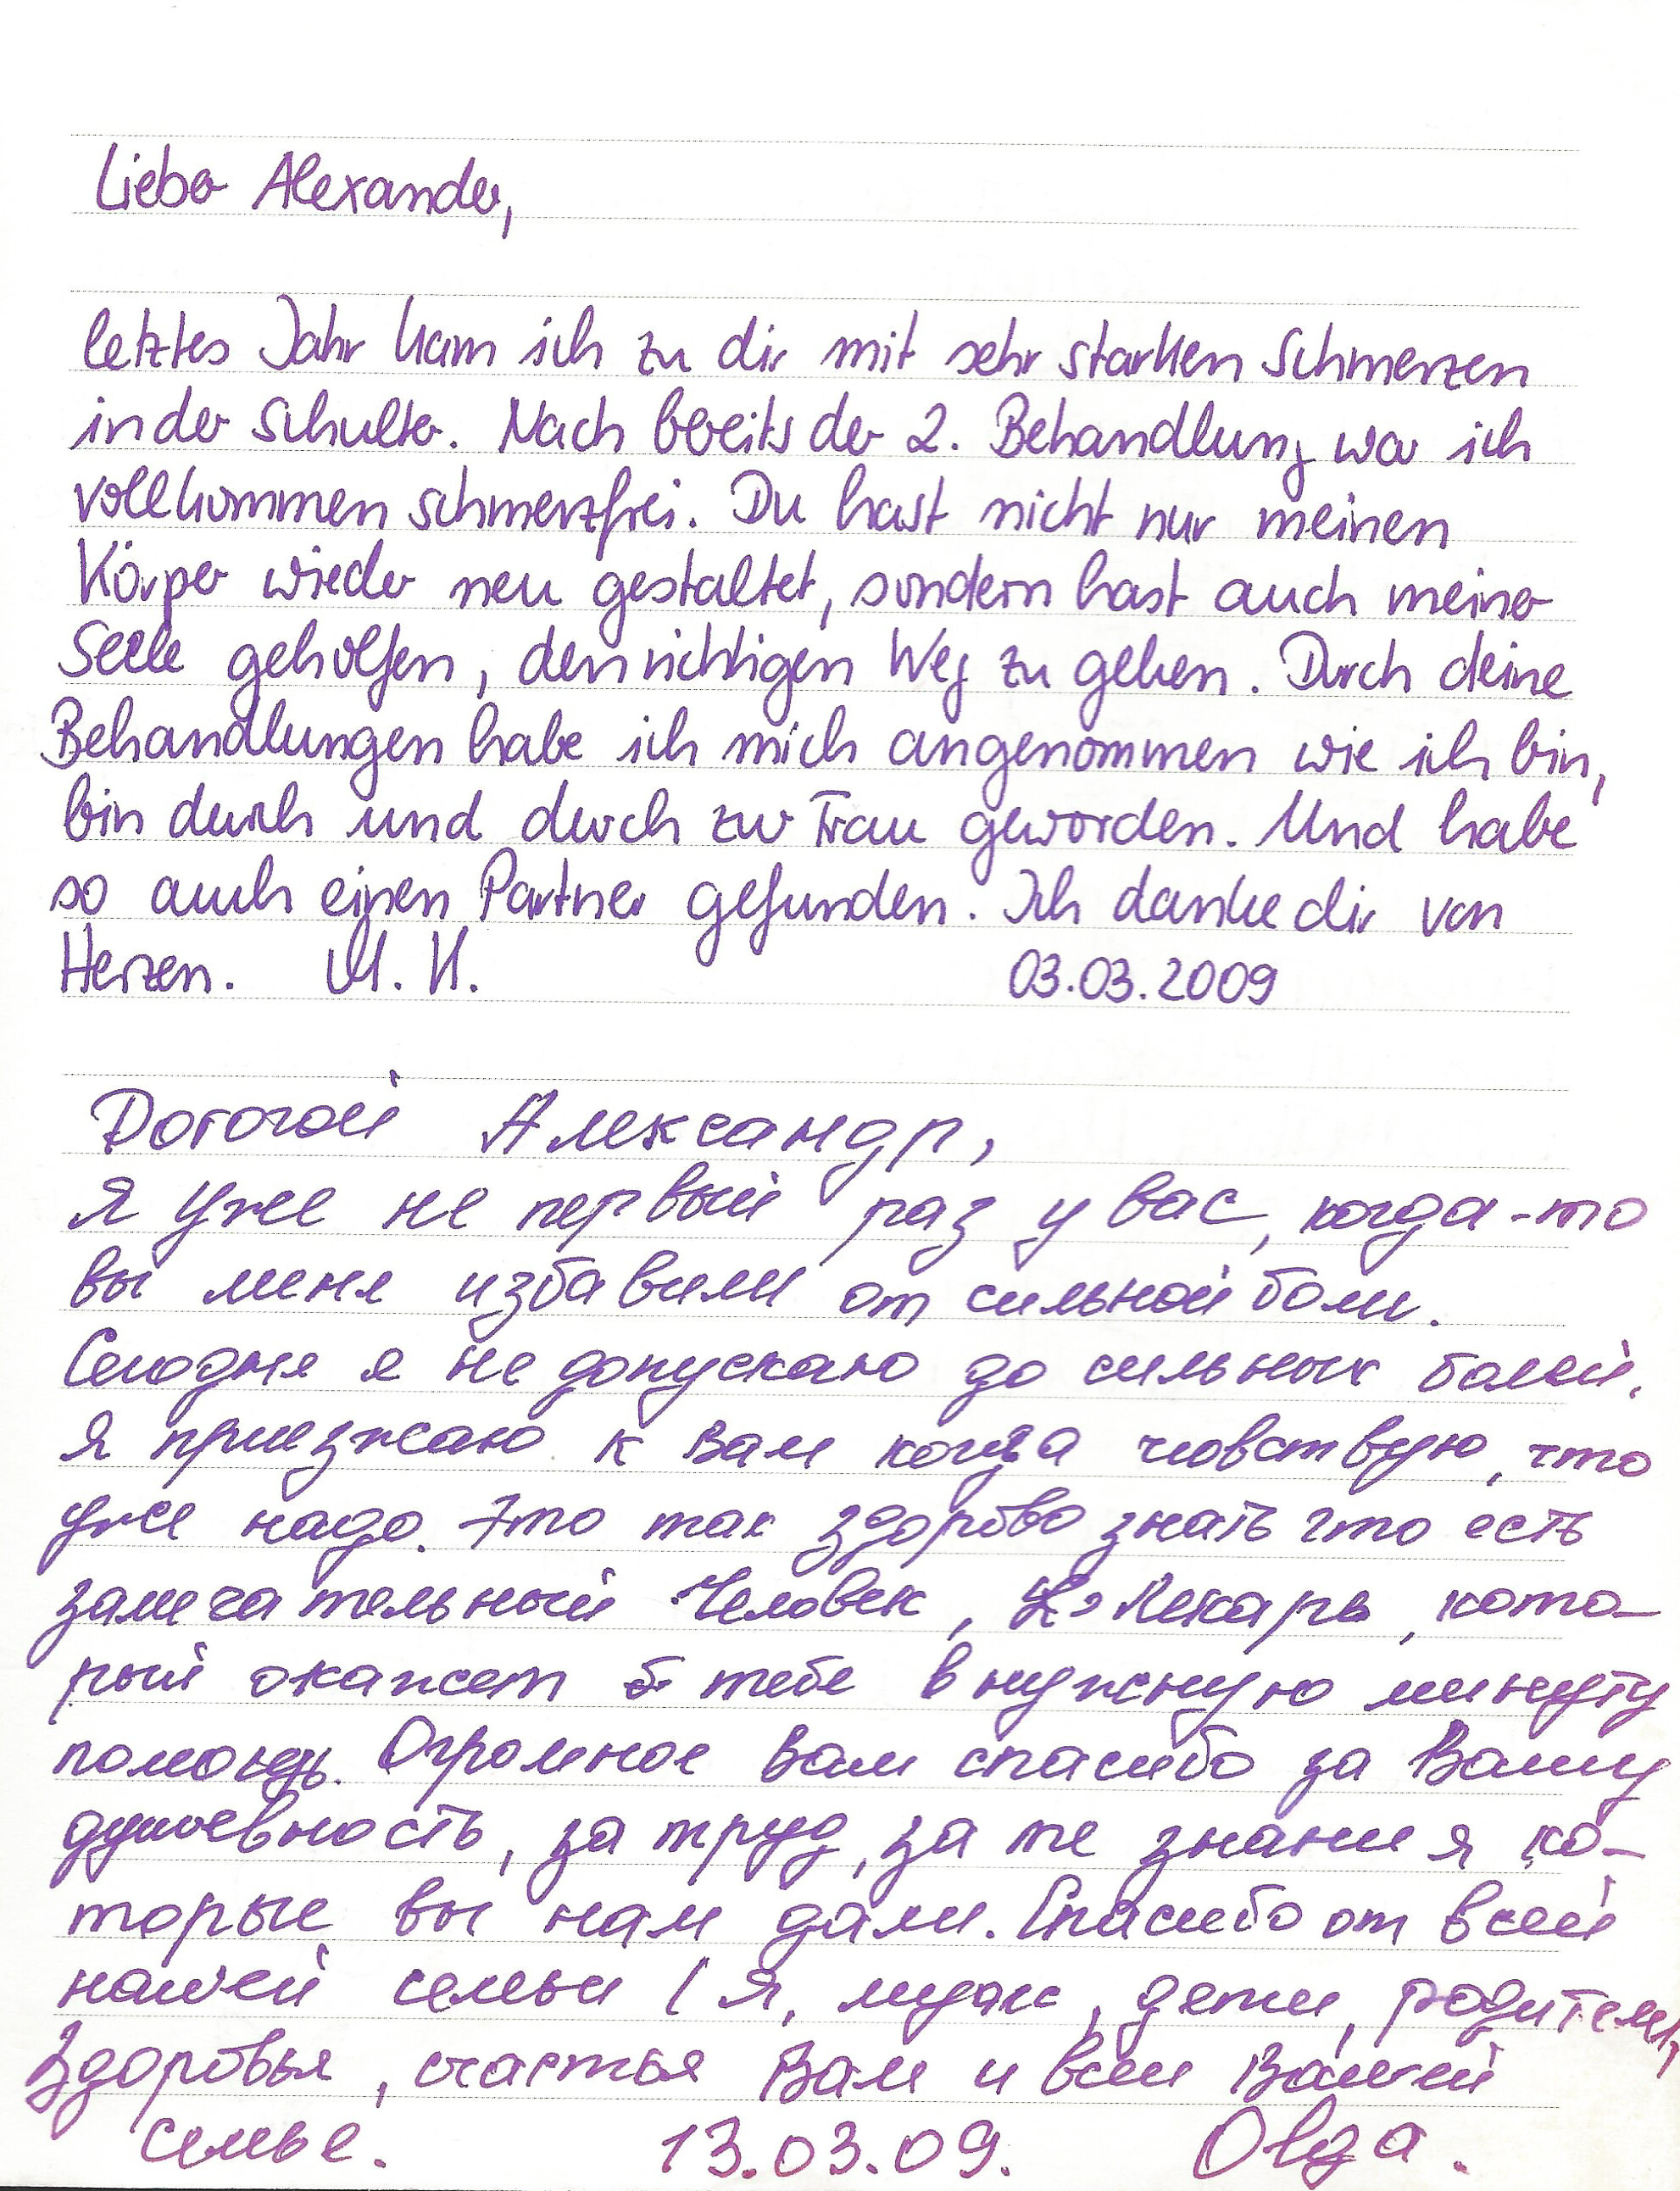 Lieber Alexander,
letztes Jahr kam ich zu dir mit sehr starken Schmerzen
in der Schulter. Nach bereits der 2. Behandlung war ich
vollkommen schmerzfrei. Du hast nicht nur meinen
Körper wieder neu gestaltet, sondern hast auch meiner
Seele geholfen, den richtigen Weg zu gehen. Durch deine
Behandlungen habe ich mich angenommen wie ich bin,
bin durch und durch zur Frau geworden. Und habe
so auch einen Partner gefunden. Ich danke dir von
Herzen. M. K. 03.03.2009
Дорогой Александр,
я уже не первый раз у вас, когда-то
вы меня избавили от сильной боли.
Сегодня я не допускаю до сильных болей.
Я приезжаю к Вам когда чувствую, что
уже надо. Это так здорово знать что есть
замечательный Человек, Лекарь, кото-
рый окажет тебе в нужную минуту
помощь. Огромное Вам спасибо за Вашу
душевность, за труд, за те знания ко-
торые вы нам дали. Спасибо от всей
нашей семьи (Я, муж, дети, родители)
Здоровья, счастья Вам и всей Вашей
семье. 13.03.09. Olga.